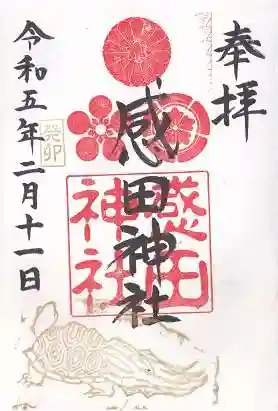 奉拝
感田神社
感田
神社
癸卯
令和五年二月十一日